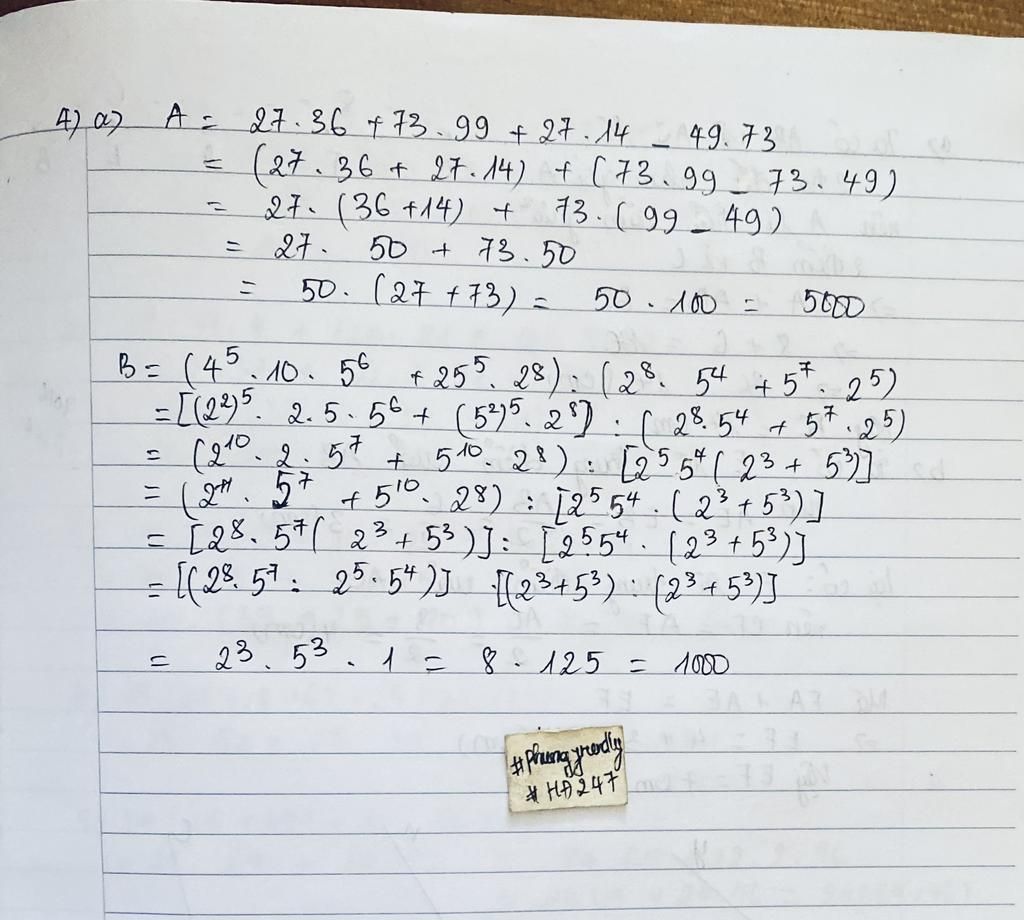 4) a) A = 27.36 + 73.99 + 27.14 - 49.73
= (27.36 + 27.14) + (73.99 - 73.49)
= 27.(36+14) + 73.(99-49)
= 27. 50 + 73.50
= 50.(27+73) = 50.100 = 5000
B = (4⁵.10.5⁶ + 25⁵.2⁸):(2⁸.5⁴ + 5⁷.2⁵)
= [(2²)⁵. 2.5.5⁶ + (5²)⁵.2⁸] : (2⁸.5⁴ + 5⁷.2⁵)
= (2¹⁰.2.5⁷ + 5¹⁰.2⁸) : [2⁵5⁴(2³ + 5³)]
= (2¹¹.5⁷ + 5¹⁰.2⁸) : [2⁵5⁴.(2³+5³)]
= [2⁸.5⁷(2³+5³)] : [2⁵.5⁴.(2³+5³)]
= [(2⁸.5⁷ : 2⁵.5⁴)] .[(2³+5³) : (2³+5³)]
= 2³.5³.1 = 8.125 = 1000
# HA247